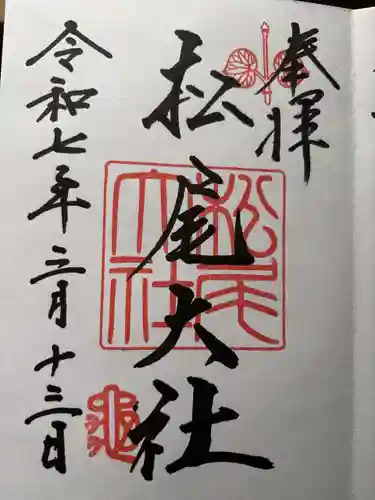 奉拝
松尾大社
松尾大社
令和七年三月十三日